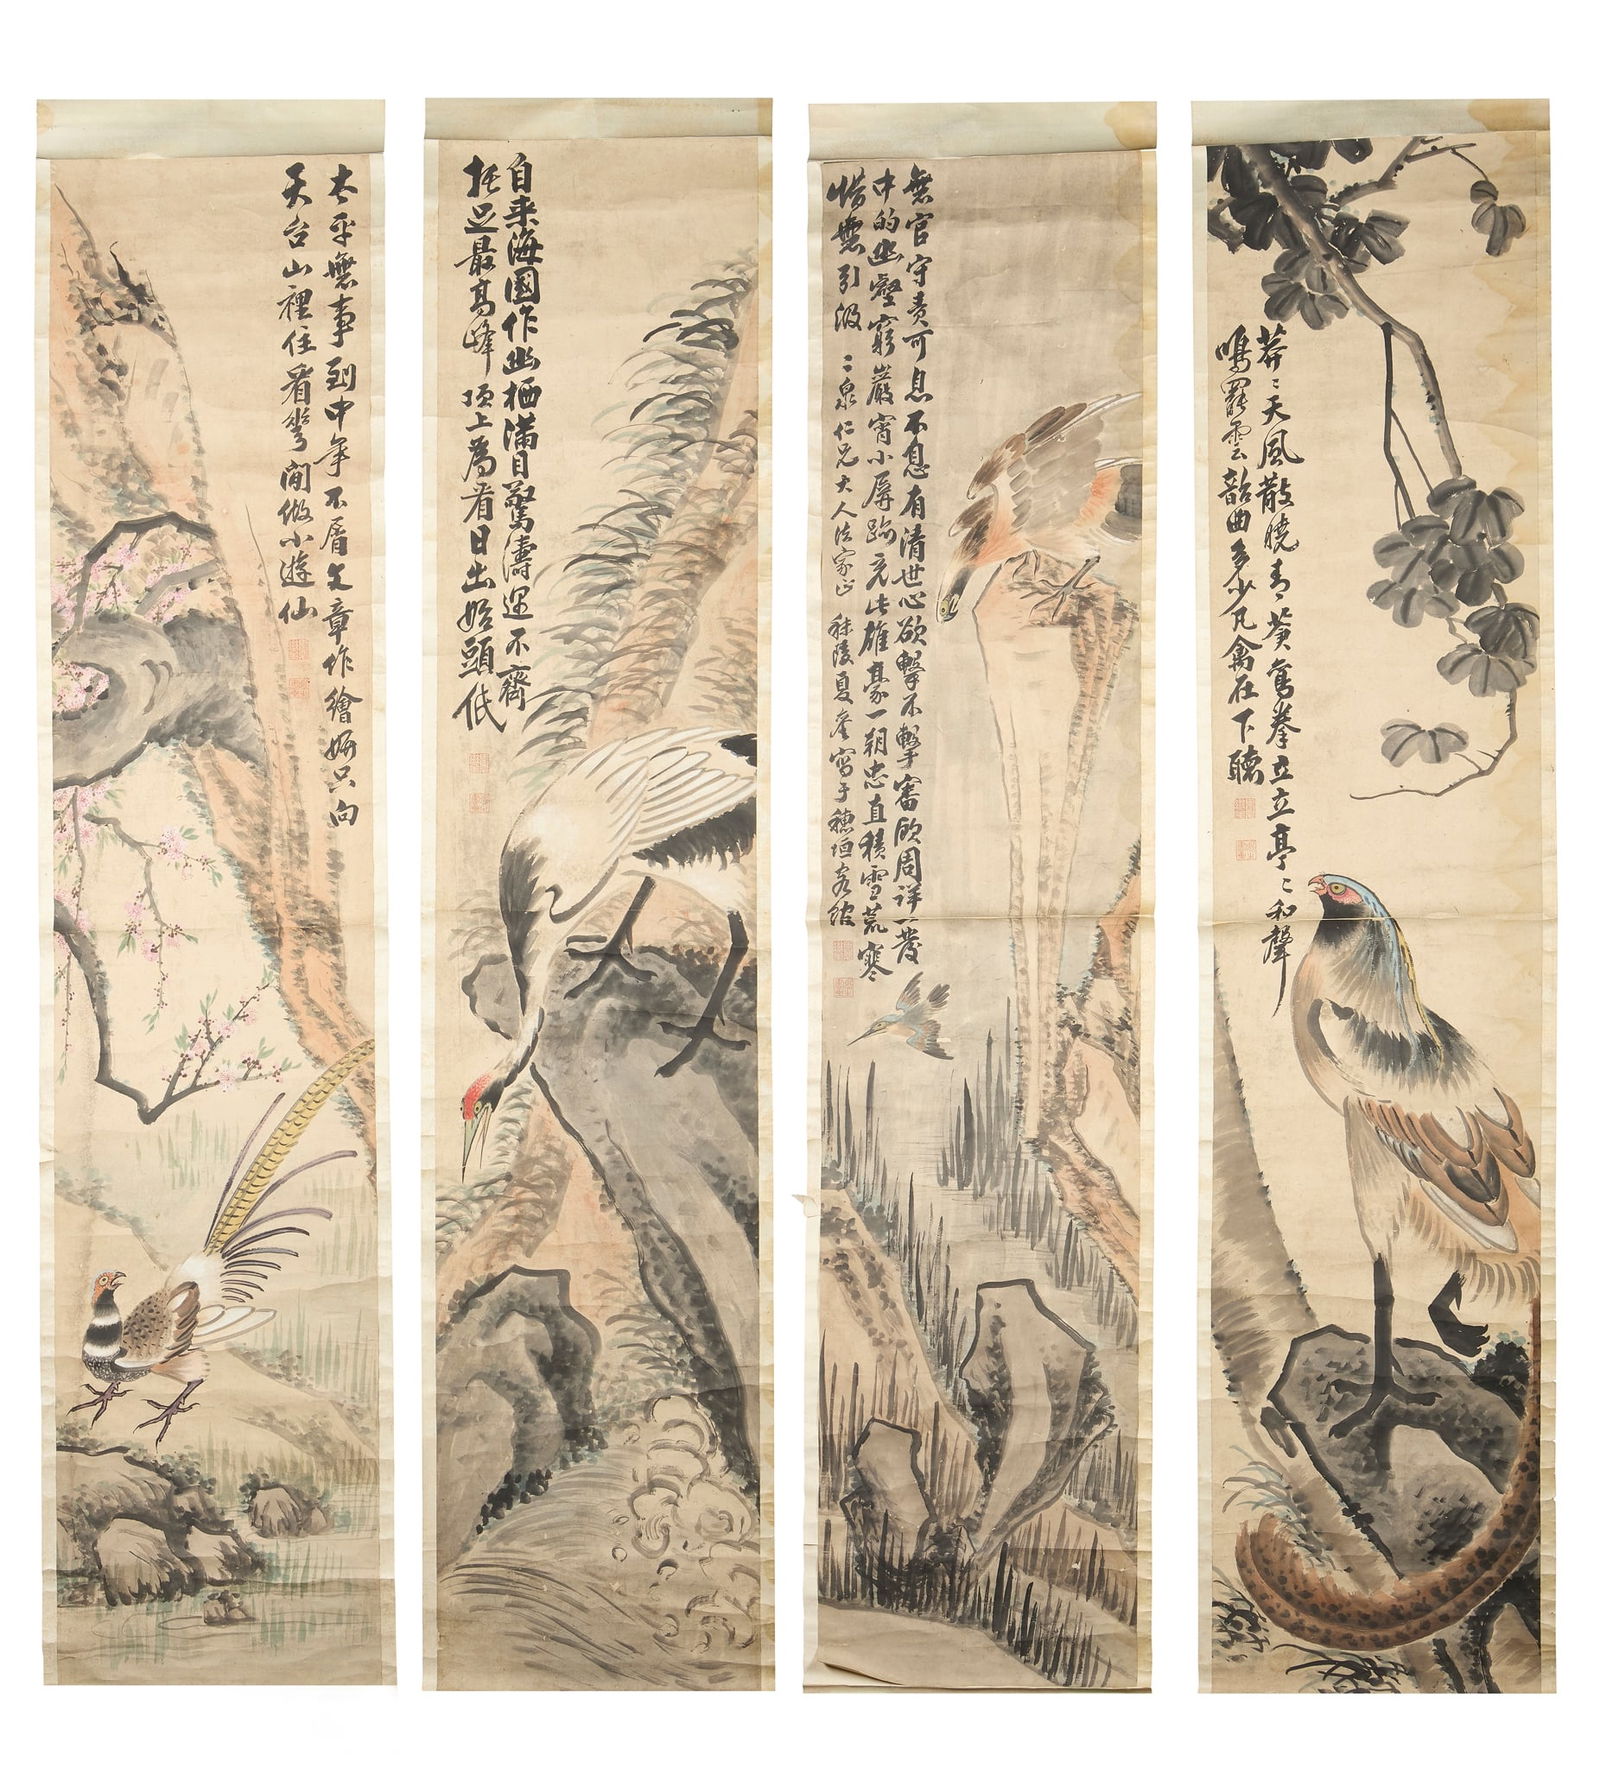 太平無事到中年不屑文章作繪妍只向
天台山裡住看花閒做小遊仙
自来海國作幽栖滿目驚濤逕不齊
托足最高峰頂上為看日出始頭低
無官守責可息不息有清世心欲擊不擊審欲周詳一發
中的幽壑窮巖宵小屏跡充此雄豪一朝忠直積雪荒寒
惜無引汲 二泉仁兄大人法家正 秣陵夏奎寫于穗垣客館
莽莽天風散曉青蒼鸞拳立立亭亭和聲
鳴罷雲韶曲多少凡禽在下聽